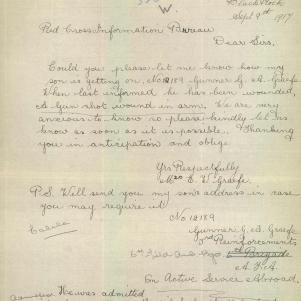 W
Black Rock
Sept 9th 1917
Red Cross Information Bureau
Dear Sirs,
Could you please let me know how my
son is getting on, No 12189 Gunner G. A. Graefe
When last informed he has been wounded,
A Gun shot wound in arm. We are very
anxious to know so please kindly let us
know as soon as it is possible. Thanking
you in anticipation and oblige
Yrs Respectfully
Mrs E. W. Graefe
P.S. Will send you my son's address in case
you may require it
No 12189
Gunner G. A. Graefe
Reinforcements
Brigade
A.F.A.
On Active Service Abroad
He was admitted